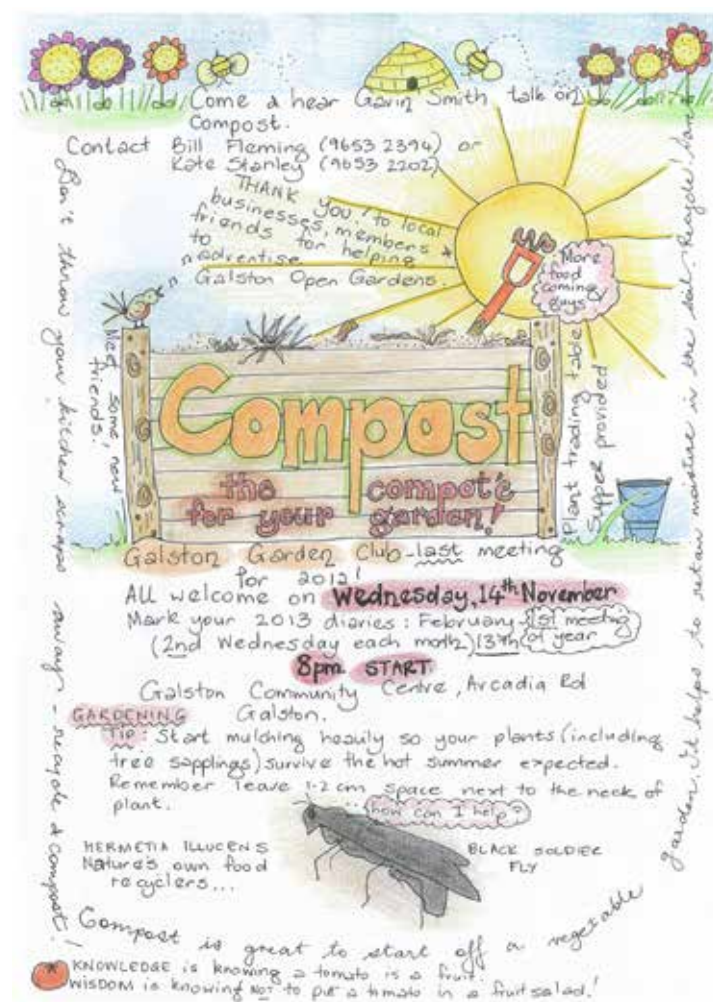 Come & hear Gavin Smith talk on
Compost.
Contact Bill Fleming (9653 2394) or
Kate Stanley (9653 2202)
THANK you! to local
businesses, members &
friends for helping
to
advertise
Galston Open Gardens.
More
food
coming
guys
Meet some new
friends!
Compost
the compot's
for your garden!
Plant trading table
Supper provided
Galston Garden Club - last meeting
for 2012!
All welcome on Wednesday, 14th November
Mark your 2013 diaries: February 1st meeting
(2nd Wednesday each moth) 13th of year
8pm START
Galston Community Centre, Arcadia Rd
Galston.
GARDENING
TIP: Start mulching heavily so your plants (including
tree sapplings) survive the hot summer expected.
Remember leave 1-2 cm space next to the neck of
plant.
how can I help?
HERMETIA ILLUCENS
Nature's own food
recyclers...
BLACK SOLDIER
FLY
Don't throw your kitchen scraps away - recycle & compost!
Compost is great to start off a vegetable
garden. It helps to retain moisture in the soil. Recycle!
KNOWLEDGE is knowing a tomato is a fruit.
WISDOM is knowing NOT to put a tomato in a fruit salad!